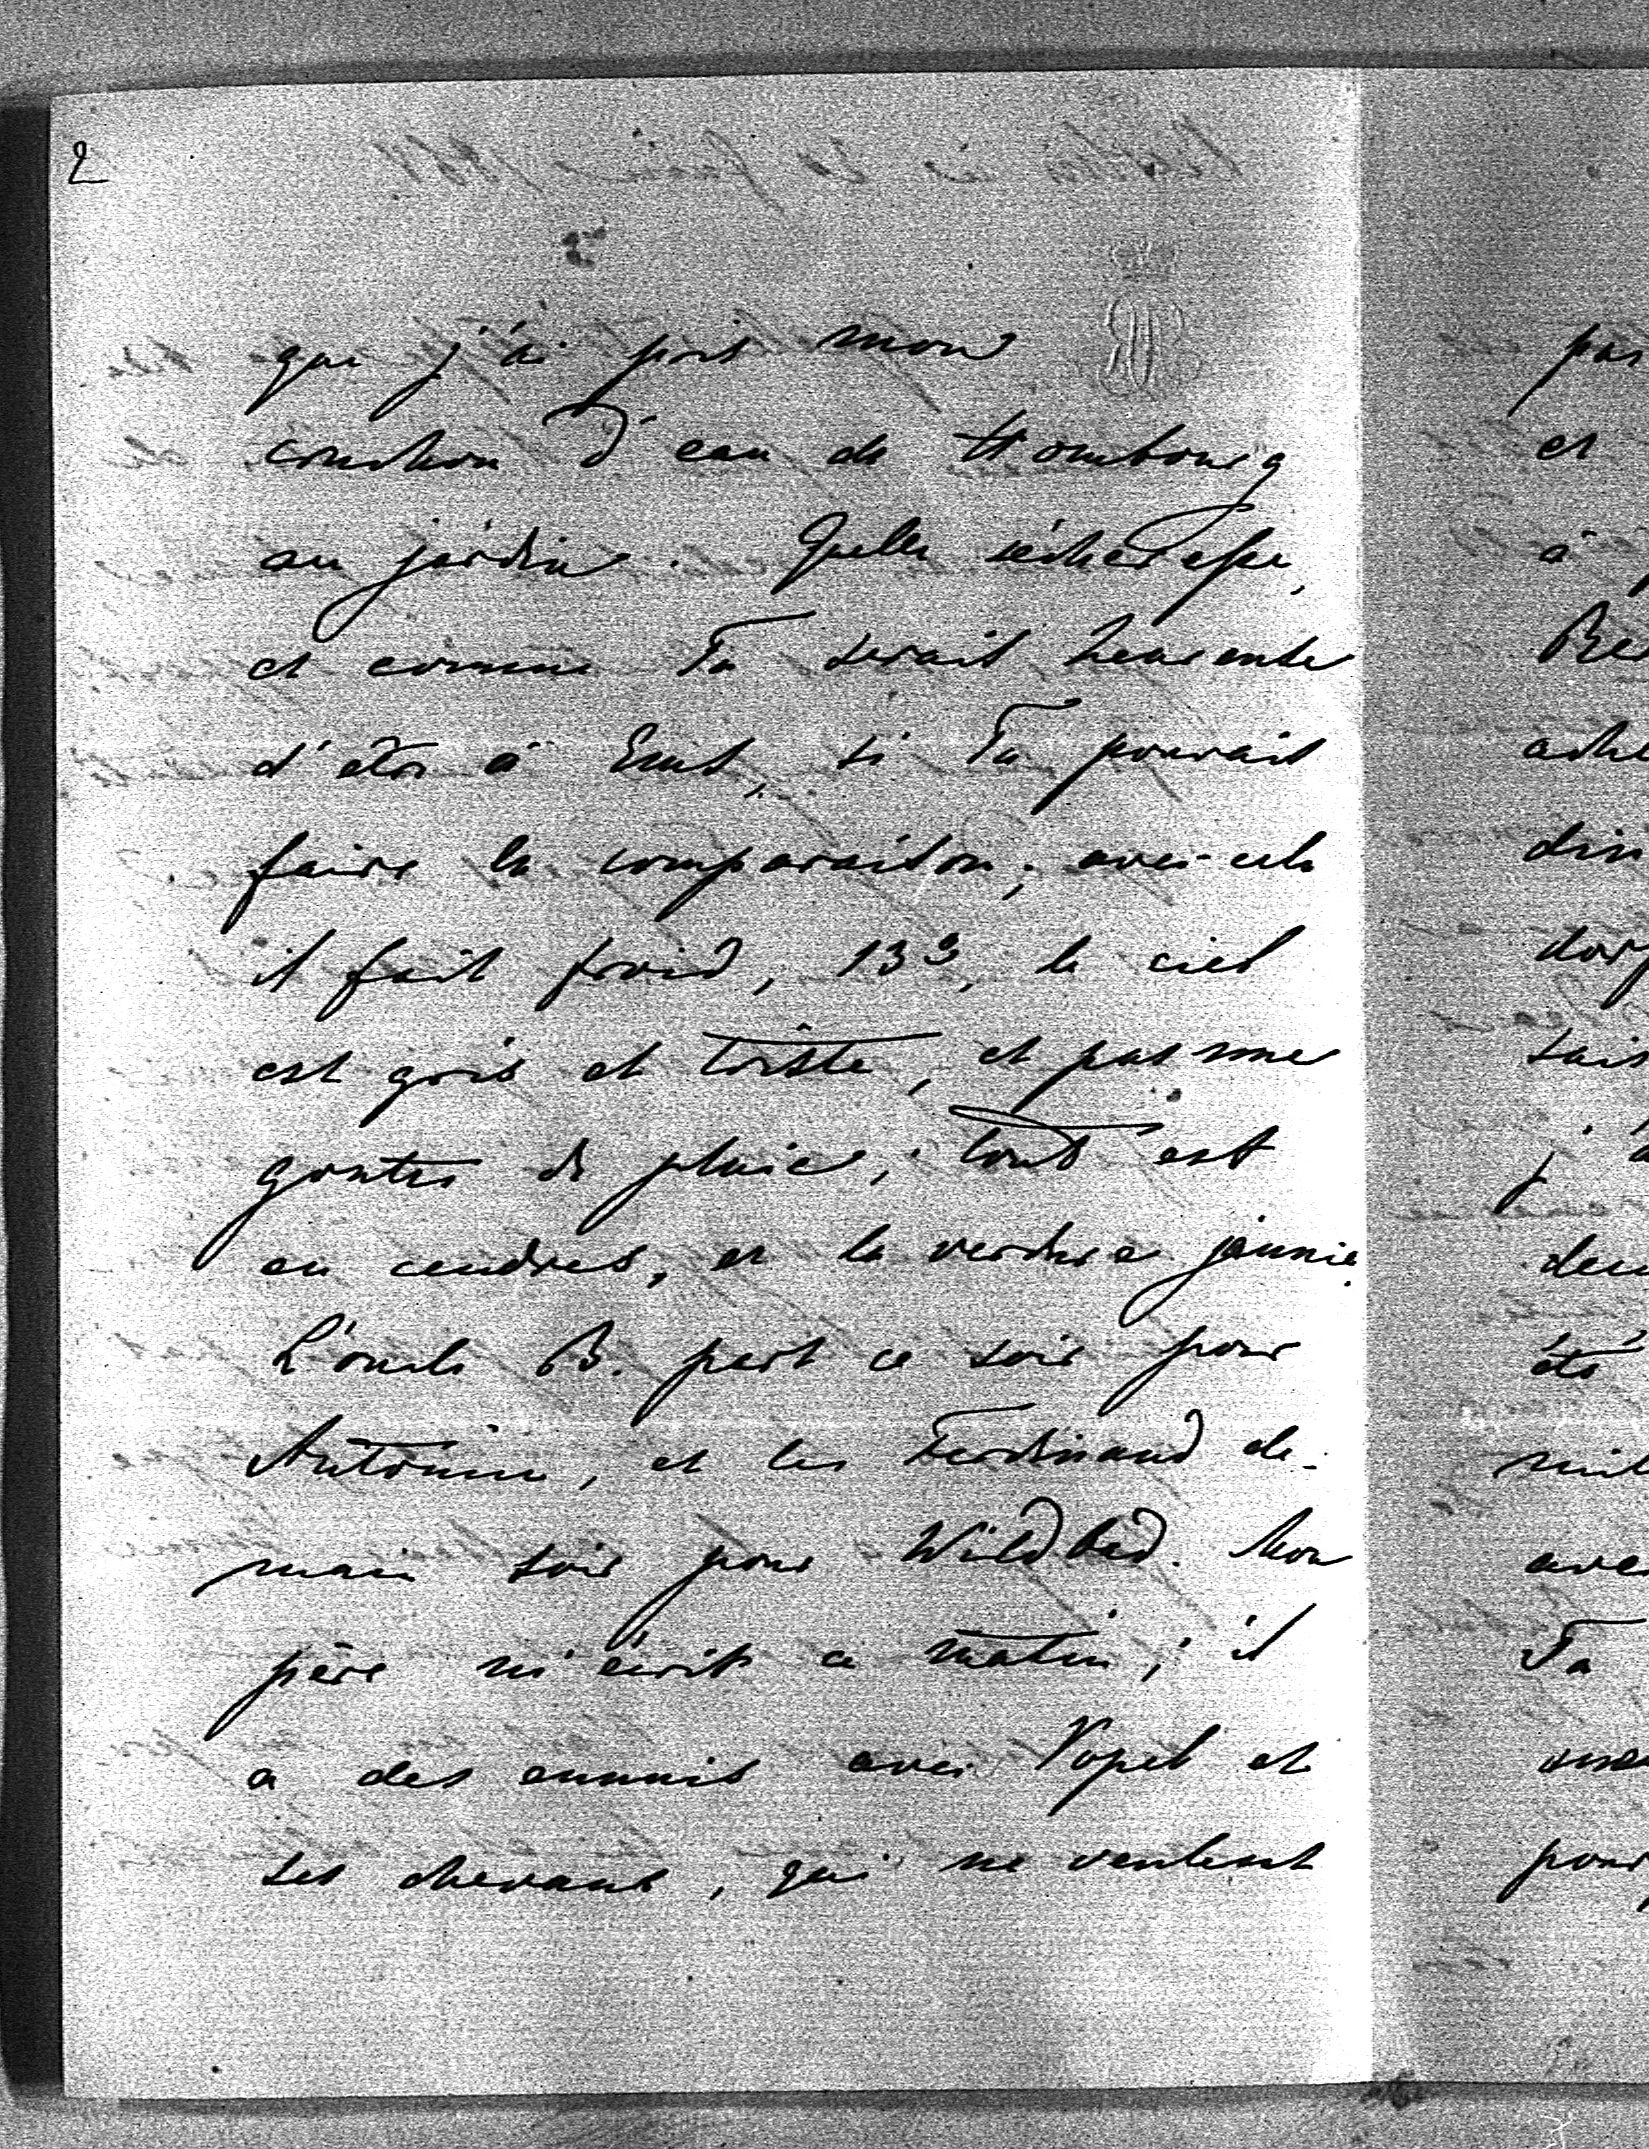 2
que j'ai pris mon
cruchon d'eau de Hombourg
au jardin. Quelle sécheresse,
et comme Tu serait heureuse
d'être à Ems, si Tu pouvait
faire la comparaison; avec cela
il fait froid, 13°, le ciel
est gris et triste, et pas une
goutte de pluie; tout est
en cendres, et la verdure jaunie.
L'oncle B. part ce soir pour
Antonin, et les Ferdinand de-
main soir pour Wildbad. Mon
père m'écrit ce matin; il
a des ennuis avec Vopel et
ses chevaux, qui ne veulent
et
à
Ta